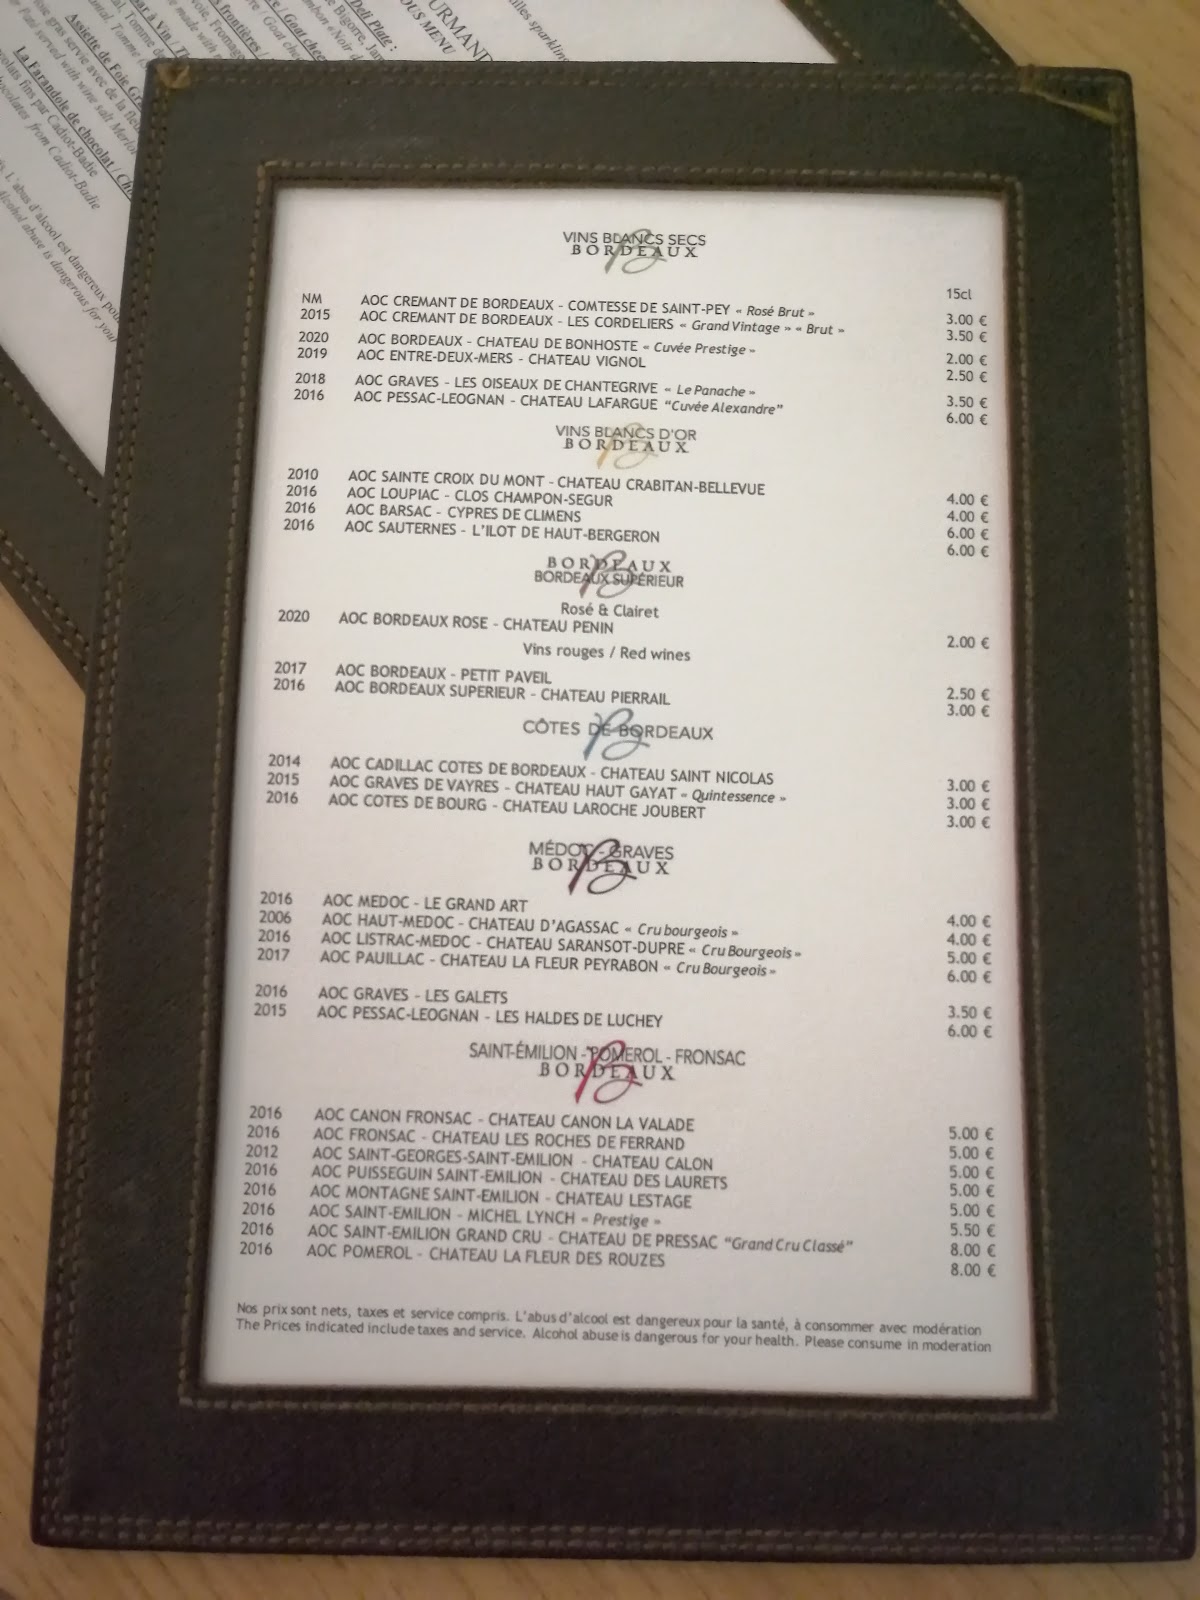 illes sparkling
OURMAND
OUS MENU
Deli Plate :
La Farandole de chocolat / Cho
colats fins par Cadiot-Badie
hocolates from Cadiot-Badie
L'abus d'alcool est dangereux pou
Alcohol abuse is dangerous for your
VINS BLANCS SECS
BORDEAUX
15cl
NM AOC CREMANT DE BORDEAUX - COMTESSE DE SAINT-PEY « Rosé Brut » 3.00 €
2015 AOC CREMANT DE BORDEAUX - LES CORDELIERS « Grand Vintage » « Brut » 3.50 €
2020 AOC BORDEAUX - CHATEAU DE BONHOSTE « Cuvée Prestige » 2.00 €
2019 AOC ENTRE-DEUX-MERS - CHATEAU VIGNOL 2.50 €
2018 AOC GRAVES - LES OISEAUX DE CHANTEGRIVE « Le Panache » 3.50 €
2016 AOC PESSAC-LEOGNAN - CHATEAU LAFARGUE "Cuvée Alexandre" 6.00 €
VINS BLANCS D'OR
BORDEAUX
2010 AOC SAINTE CROIX DU MONT - CHATEAU CRABITAN-BELLEVUE 4.00 €
2016 AOC LOUPIAC - CLOS CHAMPON-SEGUR 4.00 €
2016 AOC BARSAC - CYPRES DE CLIMENS 6.00 €
2016 AOC SAUTERNES - L'ILOT DE HAUT-BERGERON 6.00 €
BORDEAUX
BORDEAUX SUPÉRIEUR
Rosé & Clairet
2020 AOC BORDEAUX ROSE - CHATEAU PENIN 2.00 €
Vins rouges / Red wines
2017 AOC BORDEAUX - PETIT PAVEIL 2.50 €
2016 AOC BORDEAUX SUPERIEUR - CHATEAU PIERRAIL 3.00 €
CÔTES DE BORDEAUX
2014 AOC CADILLAC COTES DE BORDEAUX - CHATEAU SAINT NICOLAS 3.00 €
2015 AOC GRAVES DE VAYRES - CHATEAU HAUT GAYAT « Quintessence » 3.00 €
2016 AOC COTES DE BOURG - CHATEAU LAROCHE JOUBERT 3.00 €
MÉDOC - GRAVES
BORDEAUX
2016 AOC MEDOC - LE GRAND ART 4.00 €
2006 AOC HAUT-MEDOC - CHATEAU D'AGASSAC « Cru bourgeois » 4.00 €
2016 AOC LISTRAC-MEDOC - CHATEAU SARANSOT-DUPRE « Cru Bourgeois » 5.00 €
2017 AOC PAUILLAC - CHATEAU LA FLEUR PEYRABON « Cru Bourgeois » 6.00 €
2016 AOC GRAVES - LES GALETS 3.50 €
2015 AOC PESSAC-LEOGNAN - LES HALDES DE LUCHEY 6.00 €
SAINT-ÉMILION - POMEROL - FRONSAC
BORDEAUX
2016 AOC CANON FRONSAC - CHATEAU CANON LA VALADE 5.00 €
2016 AOC FRONSAC - CHATEAU LES ROCHES DE FERRAND 5.00 €
2012 AOC SAINT-GEORGES-SAINT-EMILION - CHATEAU CALON 5.00 €
2016 AOC PUISSEGUIN SAINT-EMILION - CHATEAU DES LAURETS 5.00 €
2016 AOC MONTAGNE SAINT-EMILION - CHATEAU LESTAGE 5.00 €
2016 AOC SAINT-EMILION - MICHEL LYNCH « Prestige » 5.50 €
2016 AOC SAINT-EMILION GRAND CRU - CHATEAU DE PRESSAC "Grand Cru Classé" 8.00 €
2016 AOC POMEROL - CHATEAU LA FLEUR DES ROUZES 8.00 €
Nos prix sont nets, taxes et service compris. L'abus d'alcool est dangereux pour la santé, à consommer avec modération
The Prices indicated include taxes and service. Alcohol abuse is dangerous for your health. Please consume in moderation